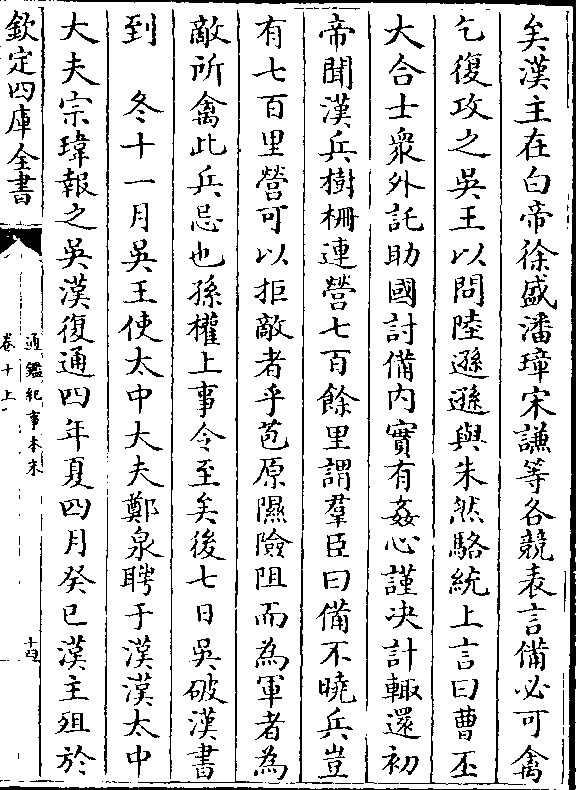 矣漢主在白帝徐盛潘璋宋謙等各競表言備必可禽
乞復攻之吳王以問陸遜遜與朱然駱統上言曰曹丕
大合士衆外託助國討備内實有姦心謹决計輙還初
帝聞漢兵樹柵連營七百餘里謂羣臣曰備不曉兵豈
有七百里營可以拒敵者乎苞原隰險阻而為軍者為
敵所禽此兵忌也孫權上事令至矣後七日吳破漢書
到　冬十一月吳王使太中大夫鄭泉聘于漢漢太中
大夫宗瑋報之吳漢復通四年夏四月癸巳漢主殂於
欽定四庫全書
通鑑紀事本末
卷十上
十四